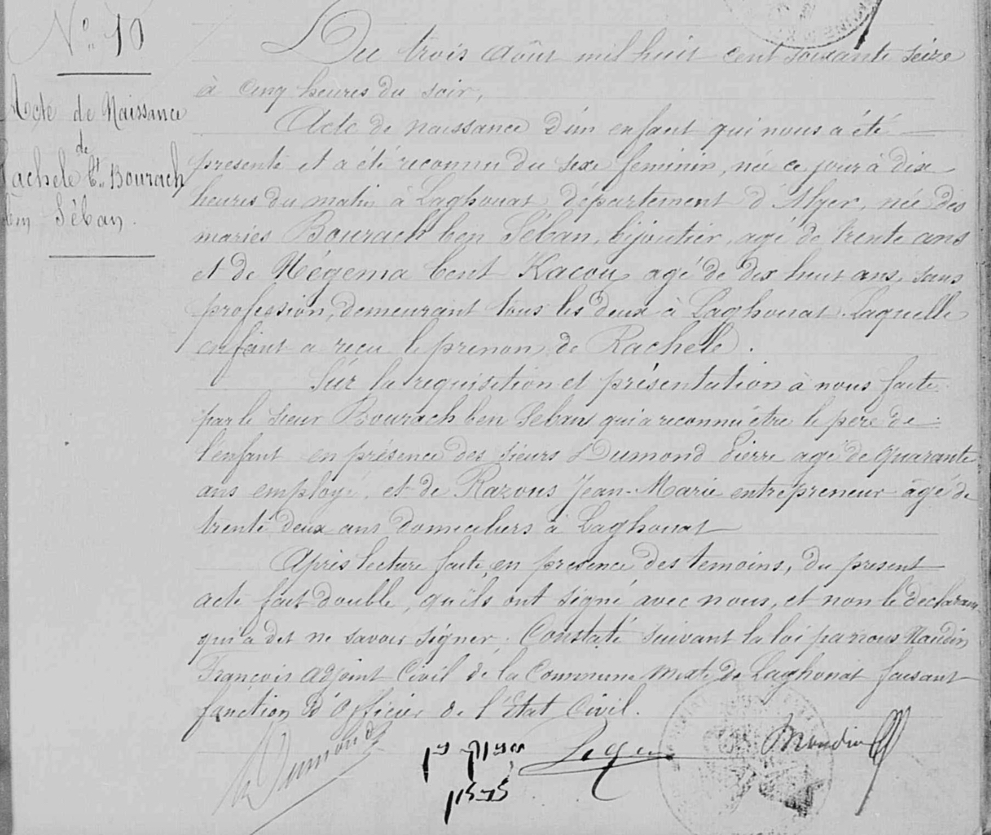 N° 10
Acte de Naissance
de
Rachele bt. Bourach
ben Séban.
Du trois Août mil huit cent soixante seize
à cinq heures du soir,
Acte de naissance d'un enfant qui nous a été
présenté et a été reconnu du sexe feminin, née ce jour à dix
heures du matin à Laghouat, département d'Alger, née des
mariés Bourach ben Séban, bijoutier, agé de trente ans
et de Négema bent Kacou, agé de dix huit ans, sans
profession, demeurant tous les deux à Laghouat. Laquelle
enfant a reçu le prenom de Rachele.
Sur la requisition et présentation à nous faite
par le sieur Bourach ben Seban qui a reconnu être le père de
l'enfant en présence des sieurs Dumond Pierre agé de quarante
ans employé, et de Razous Jean-Marie entrepreneur âgé de
trente deux ans domiciliers à Laghouat
Après lecture faite, en presence des temoins, du present
acte fait double, qu'ils ont signé avec nous, et non le déclarant
qui a dit ne savoir signer. Constaté suivant la loi par nous Maudin
François adjoint Civil de la Commune mixte de Laghouat faisant
fonction d'Officier de l'Etat Civil.
Dumond